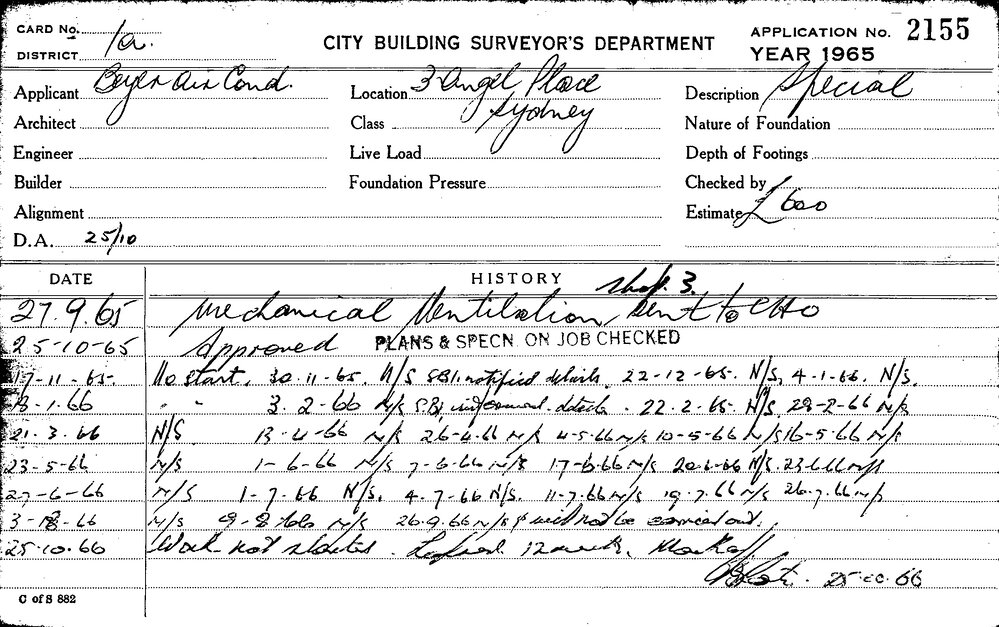 CARD No. 1a.
DISTRICT
CITY BUILDING SURVEYOR'S DEPARTMENT
APPLICATION No. 2155
YEAR 1965
Applicant Beyer Air Cond.
Location 3 Angel Place
Sydney
Description Special
Architect
Class
Nature of Foundation
Engineer
Live Load
Depth of Footings
Builder
Foundation Pressure
Checked by
Alignment
Estimate £600
D.A. 25/10
DATE HISTORY Shop 3.
27.9.65 Mechanical Ventilation, sent to CHO
25-10-65 Approved PLANS & SPECN. ON JOB CHECKED
17-11-65- No start. 30.11-65. N/S SBI. notified details. 22-12-65. N/S, 4-1-66. N/S.
18-1.66 " " 3.2-66 N/S S.B.I. details. 22.2.65. N/S. 28-2-66 N/S
21.3.66 N/S. 13-4-66 N/S 26-4.66 N/S 4-5-66 N/S 10-5-66 N/S 16-5.66 N/S.
23-5-66 N/S 1-6-66 N/S 7-6-66 N/S 17-6-66 N/S 20-6-66 N/S. 23.6.66 N/S
27-6-66 N/S 1-7.66 N/S. 4.7-66 N/S. 11-7.66 N/S 19.7.66 N/S 26.7.66 N/S
3-8-66 N/S 9-8-66 N/S 26.9.66 N/S & will not be carried out.
25.10.66 Work not started. Lapsed 12 months. Mark off
25.10.66
C of S 882